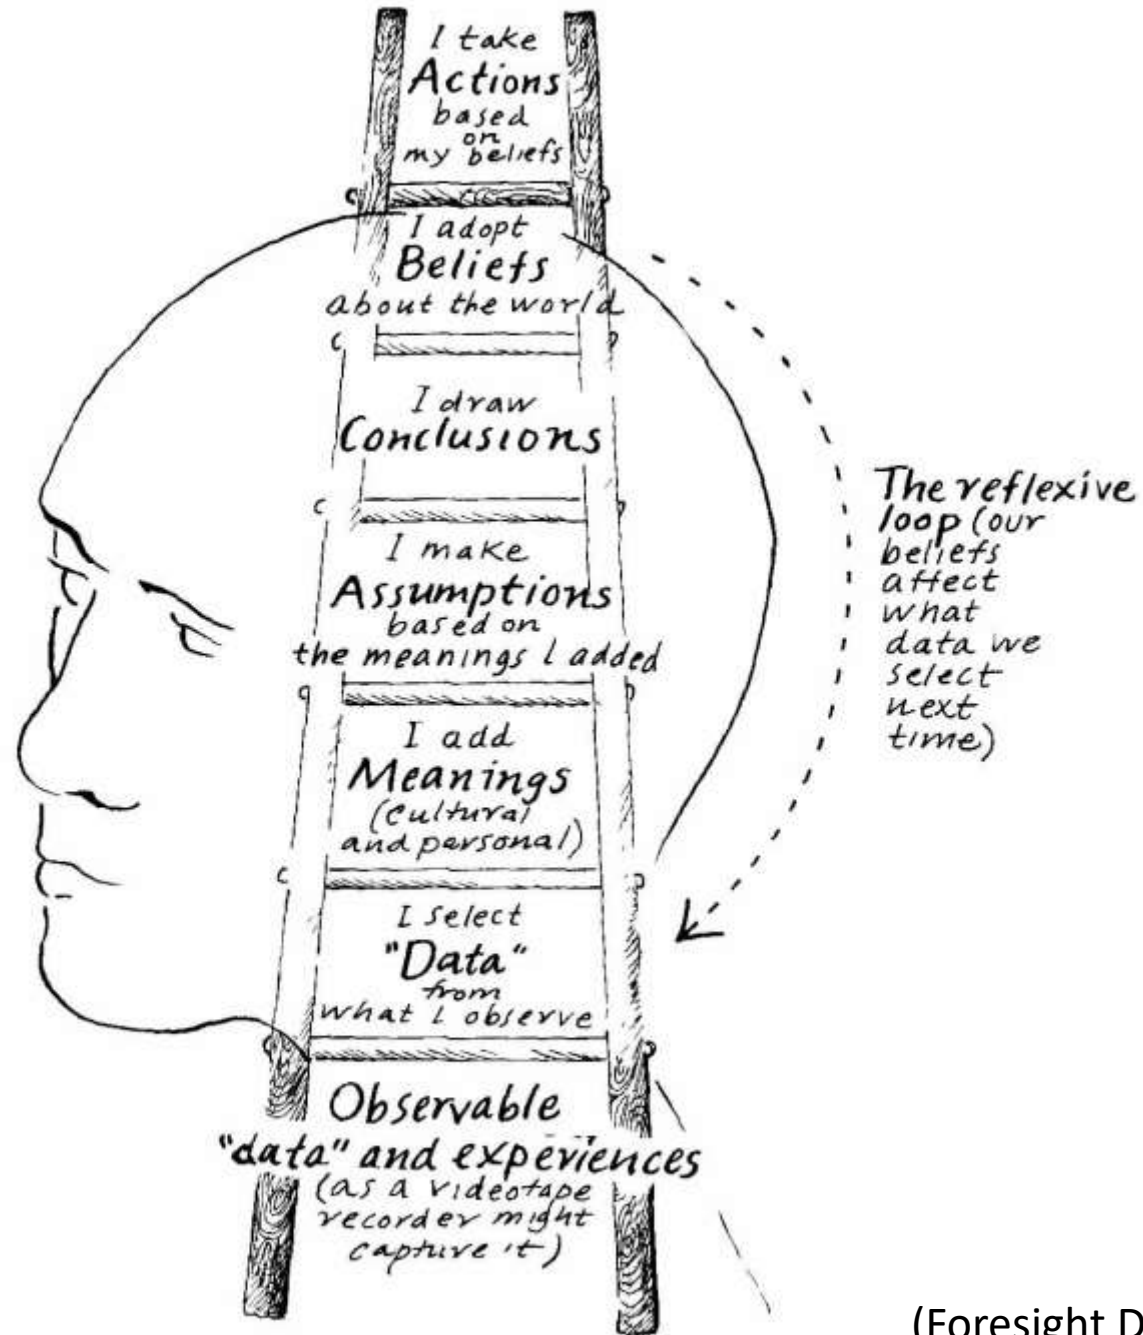 I take
Actions
based
on
my beliefs
I adopt
Beliefs
about the world
I draw
Conclusions
I make
Assumptions
based on
the meanings I added
I add
Meanings
(cultural
and personal)
I select
"Data"
from
what I observe
Observable
"data" and experiences
(as a videotape
recorder might
capture it)
The reflexive
loop (our
beliefs
affect
what
data we
select
next
time)
(Foresight D